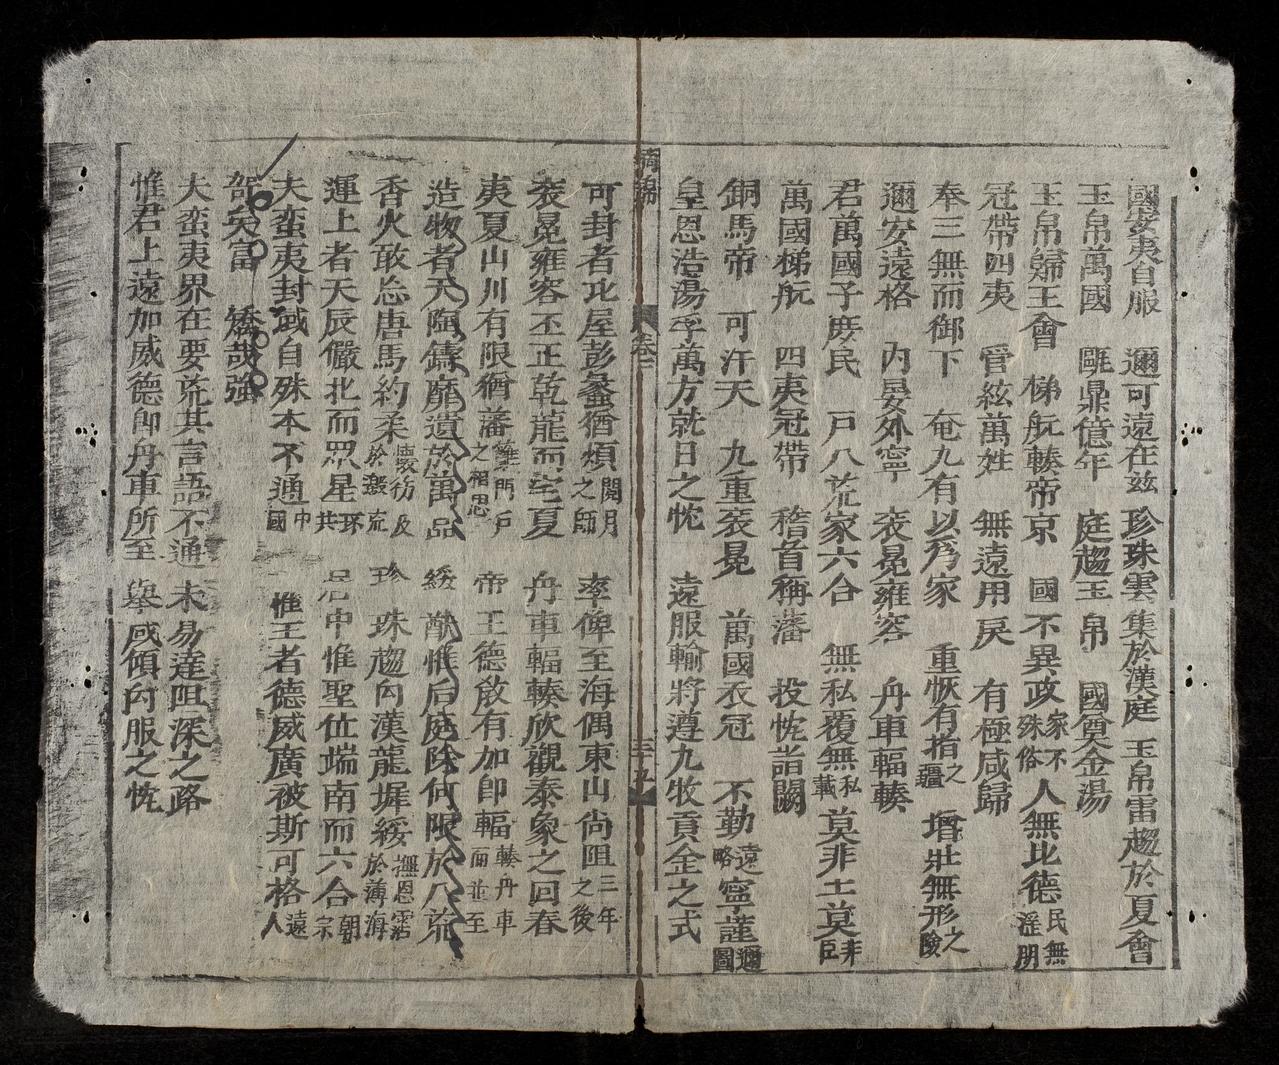 國安夷自服　邇可遠在茲　珍珠雲集於漢庭　玉帛雷趨於夏會
玉帛萬國　鼎億年　庭趨玉帛　國奠金湯
玉帛歸王會　梯航輳帝京　國不異政家不殊俗　人無比德民無淫朋
冠帶四夷　管絃萬姓　無遠用戾　有極咸歸
奉三無而御下　奄九有以爲家　重恢有指之疆　增壯無形之險
邇安遠格　內晏外寧　袞冕雍容　舟車輻輳
君萬國子庶民　戸八荒家六合　無私覆無私載　莫非土莫非臣
萬國梯航　四夷冠帶　稽首稱藩　投忱詣闕
銅馬帝　可汗天　九重袞冕　萬國衣冠　不勤遠略　寧謹邇圖
皇恩浩湯孚萬方就日之忱　遠服輸將遵九牧貢金之式
卷二
三十五
可封者比屋彭蠡猶煩閱月之師　率俾至海偶東山尚阻三年之後
袞冕雍容丕正乾龍而宅夏　舟車輻輳欣觀泰象之回春
夷夏山川有限猶藩籬門戸之相思　帝王德敘有加卽輻輳舟車而並至
造物者天陶鑄靡遺於萬品　綏猷惟后庭除何限於八荒
香火敢忘唐馬約柔懷彷彿於遐荒　珍珠趨內漢龍墀綏撫恩霑於薄海
運上者天辰儼北而眾星环共　居中惟聖位端南而六合朝宗
夫蛮夷封域自殊本不通中國　惟王者德威廣被斯可格遠人
矣富　矯哉強
夫蛮夷界在要荒其言語不通　未易達阻深之路
惟君上遠加威德卽舟車所至　舉咸傾內服之忱